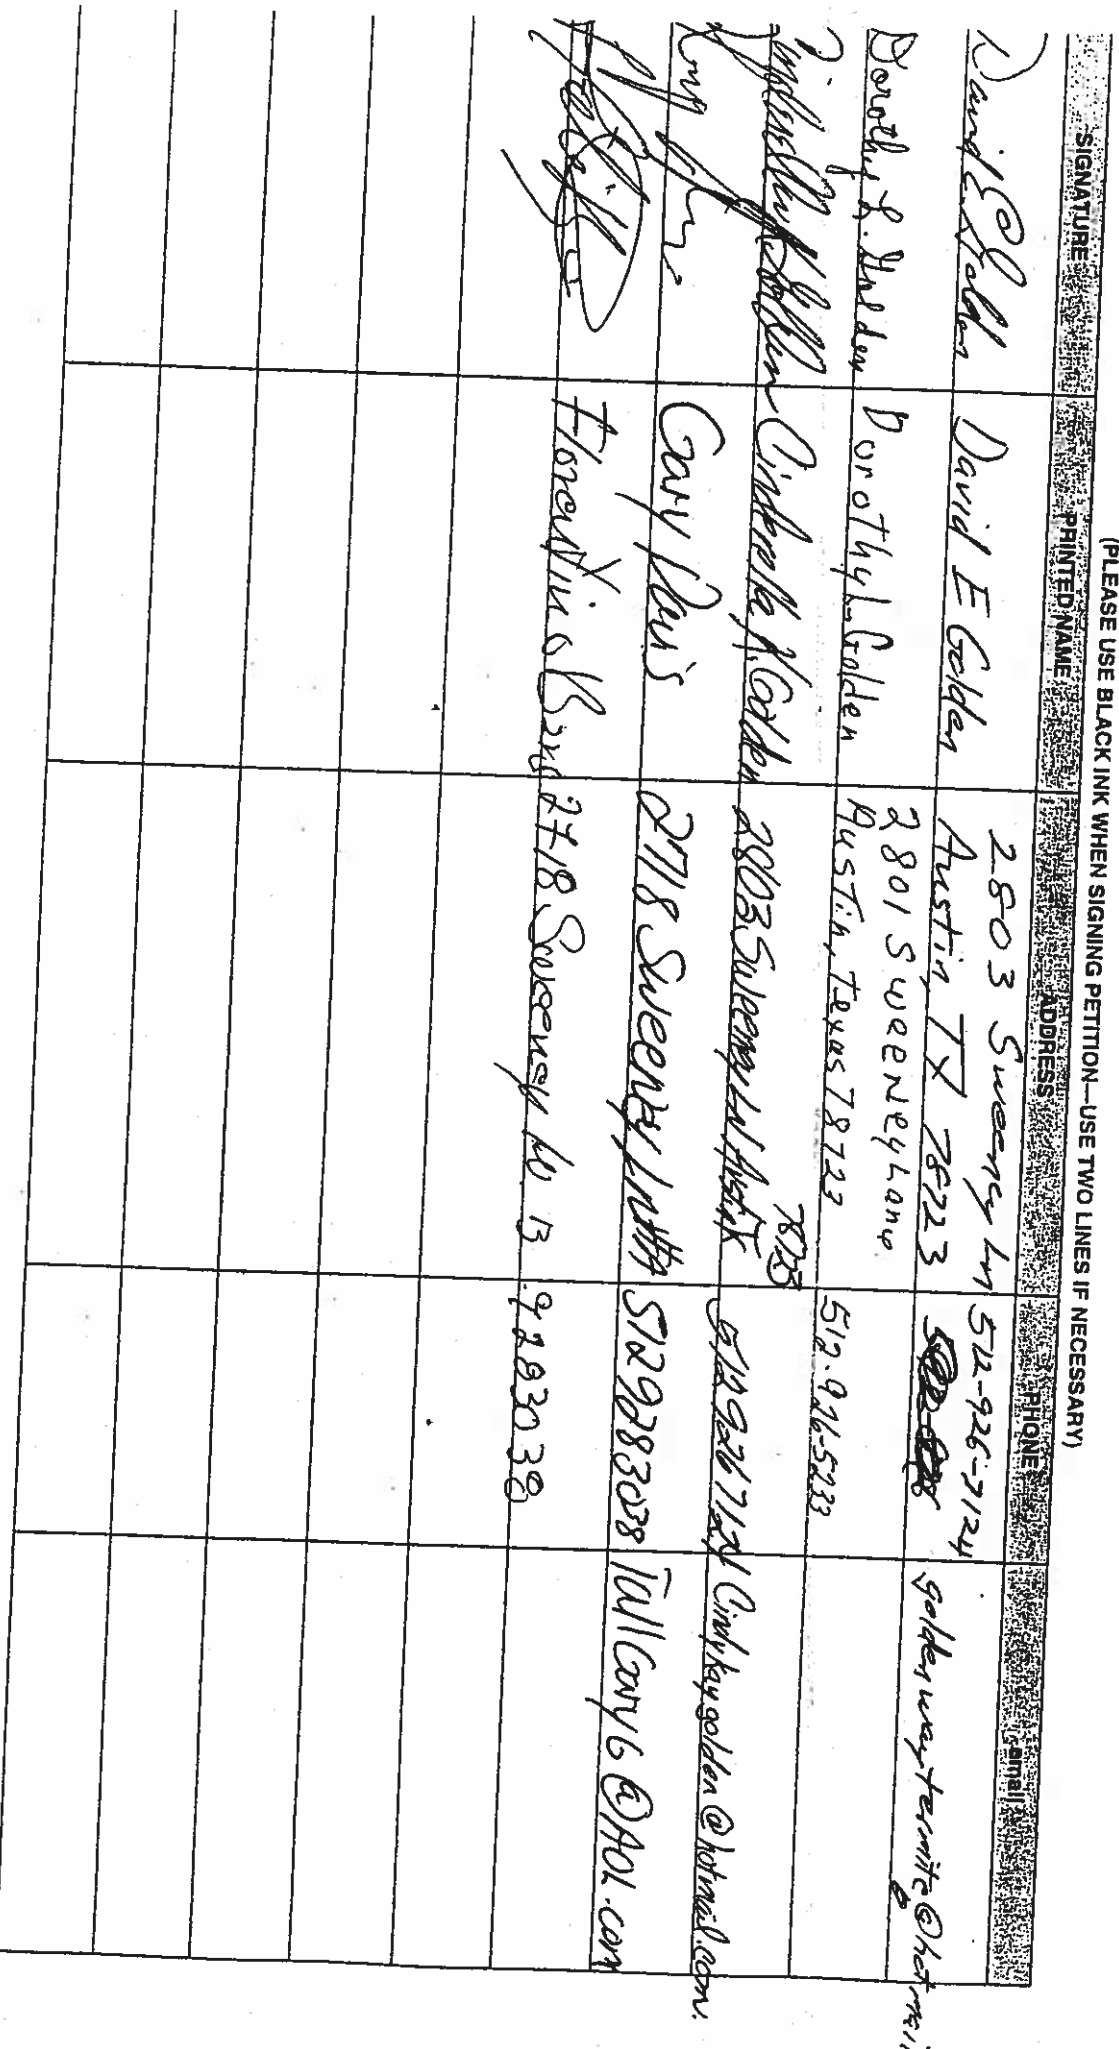 (PLEASE USE BLACK INK WHEN SIGNING PETITION—USE TWO LINES IF NECESSARY)
SIGNATURE PRINTED NAME ADDRESS PHONE email
David E Golden David E Golden 2803 Sweeney Ln 512-926-7124
Austin, TX 78723 goldenwaytermite@hotmail
Dorothy L. Golden Dorothy L. Golden 2801 Sweeney Lane
Austin, Texas 78723 512-926-5233
Cinderella K Golden 2803 Sweeney Ln Austin TX 78723 512 926 7124 Cindykaygolden@hotmail.com.
Gary Davis 2718 Sweeney Ln 512 9283038 TallGary6@AOL.com
Florentino 2718 Sweeney Ln B 9283038